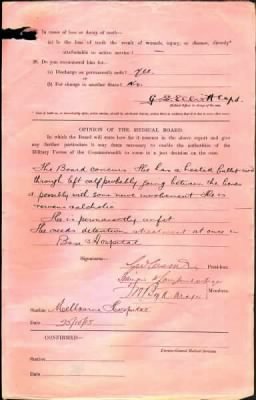 In cases of loss or decay of teeth—
(a) Is the loss of teeth the result of wounds, injury, or disease, directly*
attributable to active service?
20. Do you recommend him for—
(a) Discharge as permanently unfit? Yes.
(b) For change to another State? No.
Capt.
Medical Officer in charge of the case.
OPINION OF THE MEDICAL BOARD.
In which the Board will state how far it concurs in the above report and give
any further particulars it may deem necessary to enable the authorities of the
Military Forces of the Commonwealth to come to a just decision on the case.
The Board concurs He has a healed bullet wound
through left calf probably going between the bones
& possibly with some nerve involvement. He is
nervous alcoholic
He is permanently unfit
He needs detention & treatment at once in
Base Hospital
Signatures:—
President.
Members.
Station Melbourne Hospital
Date
CONFIRMED—
Director-General Medical Services.
Date